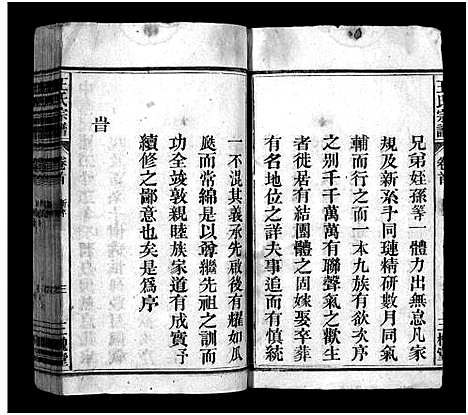 兄弟姪孫等一體力出無息凡家
規及新系手同璉精研數月同氣
輔而行之而一本九族有欲次序
之別千千萬萬有聯聲氣之歡生
者徙居有結團體之固嫁娶卒葬
有名地位之詳夫事追而有慎統
一不混其義承先啟後有耀如瓜
瓞而常綿是以尊繼先祖之訓而
功全竣敦親睦族家道有成實予
續修之鄙意也矣是爲序
旹
王氏宗譜
卷首
王氏宗譜
卷首
三